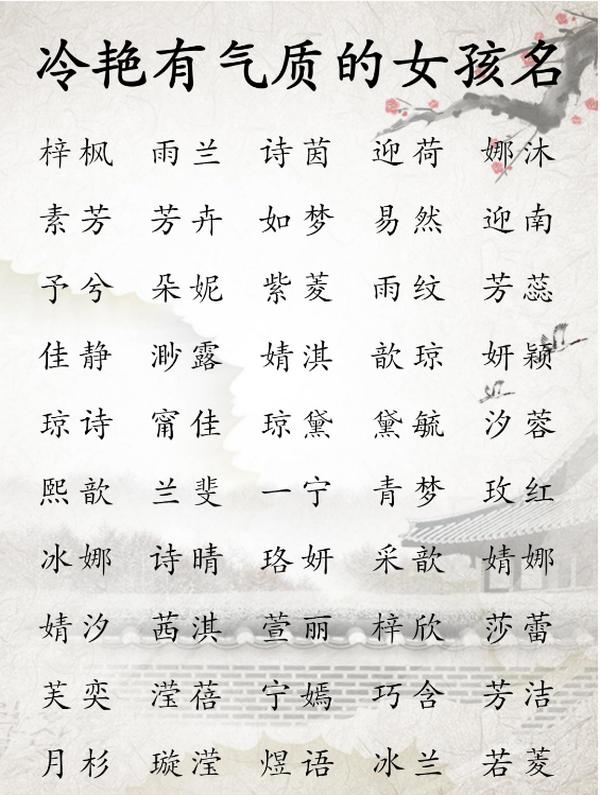 冷艳有气质的女孩名
梓枫 雨兰 诗茵 迎荷 娜沐
素芳 芳卉 如梦 易然 迎南
予兮 朵妮 紫菱 雨纹 芳蕊
佳静 渺露 婧淇 歆琼 妍颖
琼诗 甯佳 琼黛 黛毓 汐蓉
熙歆 兰斐 一宁 青梦 玫红
冰娜 诗晴 珞妍 采歆 婧娜
婧汐 茜淇 萱丽 梓欣 莎蕾
芙奕 滢蓓 宁嫣 巧含 芳洁
月杉 璇滢 煜语 冰兰 若菱